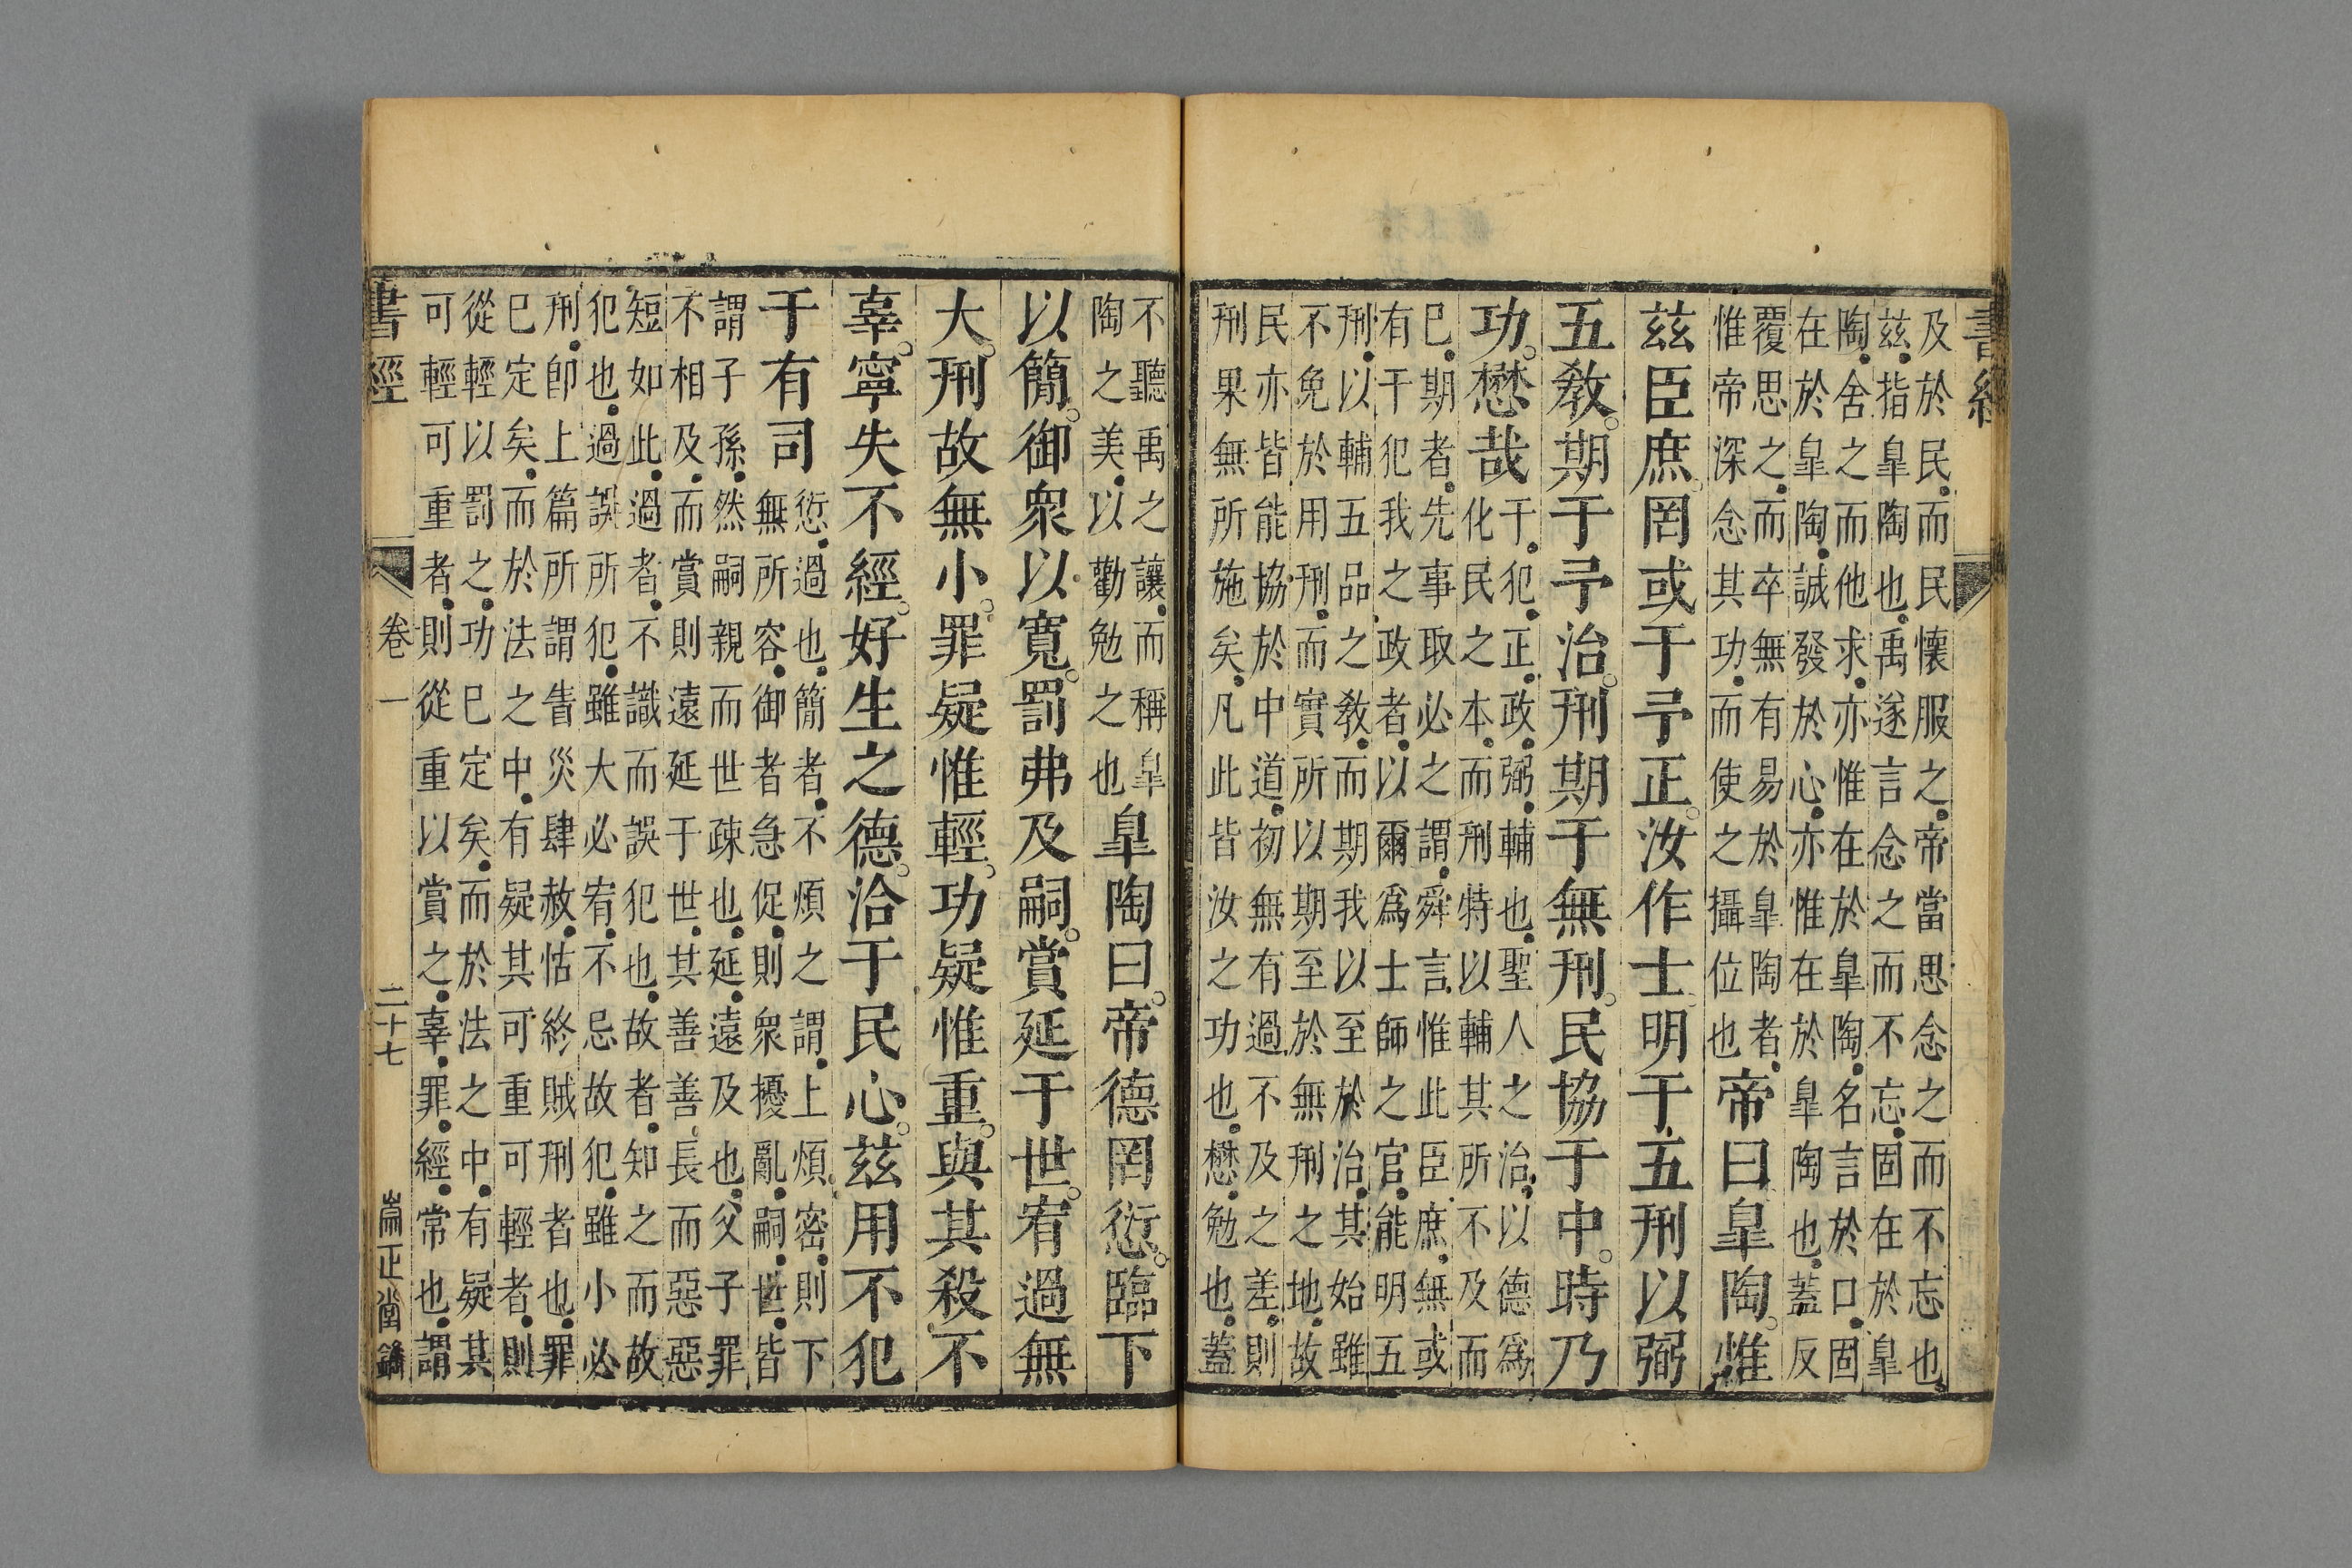 書經
及於民而民懷服之帝當思念之而不忘也
茲指皐陶也禹遂言念之而不忘固在於皐
陶舍之而他求亦惟在於皐陶名言於口固
在於皐陶誠發於心亦惟在於皐陶也蓋反
覆思之而卒無有易於皐陶者
惟帝深念其功而使之攝位也
帝曰皐陶惟
茲臣庶罔或干予正汝作士明于五刑以弼
五敎期于予治刑期于無刑民協于中時乃
功懋哉
干犯正政弼輔也聖人之治以德爲
化民之本而刑特以輔其所不及而
已期者先事取必之謂舜言惟此臣庶無或
有干犯我之政者以爾爲士師之官能明五
刑以輔五品之敎而期我以至於治其始雖
不免於用刑而實所以期至於無刑之地故
民亦皆能協於中道初無有過不及之差則
刑果無所施矣凡此皆汝之功也懋勉也蓋
不聽禹之讓而稱皐
陶之美以勸勉之也
皐陶曰帝德罔愆臨下
以簡御衆以寬罰弗及嗣賞延于世宥過無
大刑故無小罪疑惟輕功疑惟重與其殺不
辜寧失不經好生之德洽于民心茲用不犯
于有司
愆過也簡者不煩之謂上煩密則下
無所容御者急促則衆擾亂嗣世皆
謂子孫然嗣親而世疎也延遠及也父子罪
不相及而賞則遠延于世其善善長而惡惡
短如此過者不識而誤犯也故者知之而故
犯也過誤所犯雖大必宥不忌故犯雖小必
刑卽上篇所謂眚災肆赦怙終賊刑者也罪
已定矣而於法之中有疑其可重可輕者則
從輕以罰之功已定矣而於法之中有疑其
可輕可重者則從重以賞之辜罪經常也謂
書經
卷一
二十七
崙正堂鐫